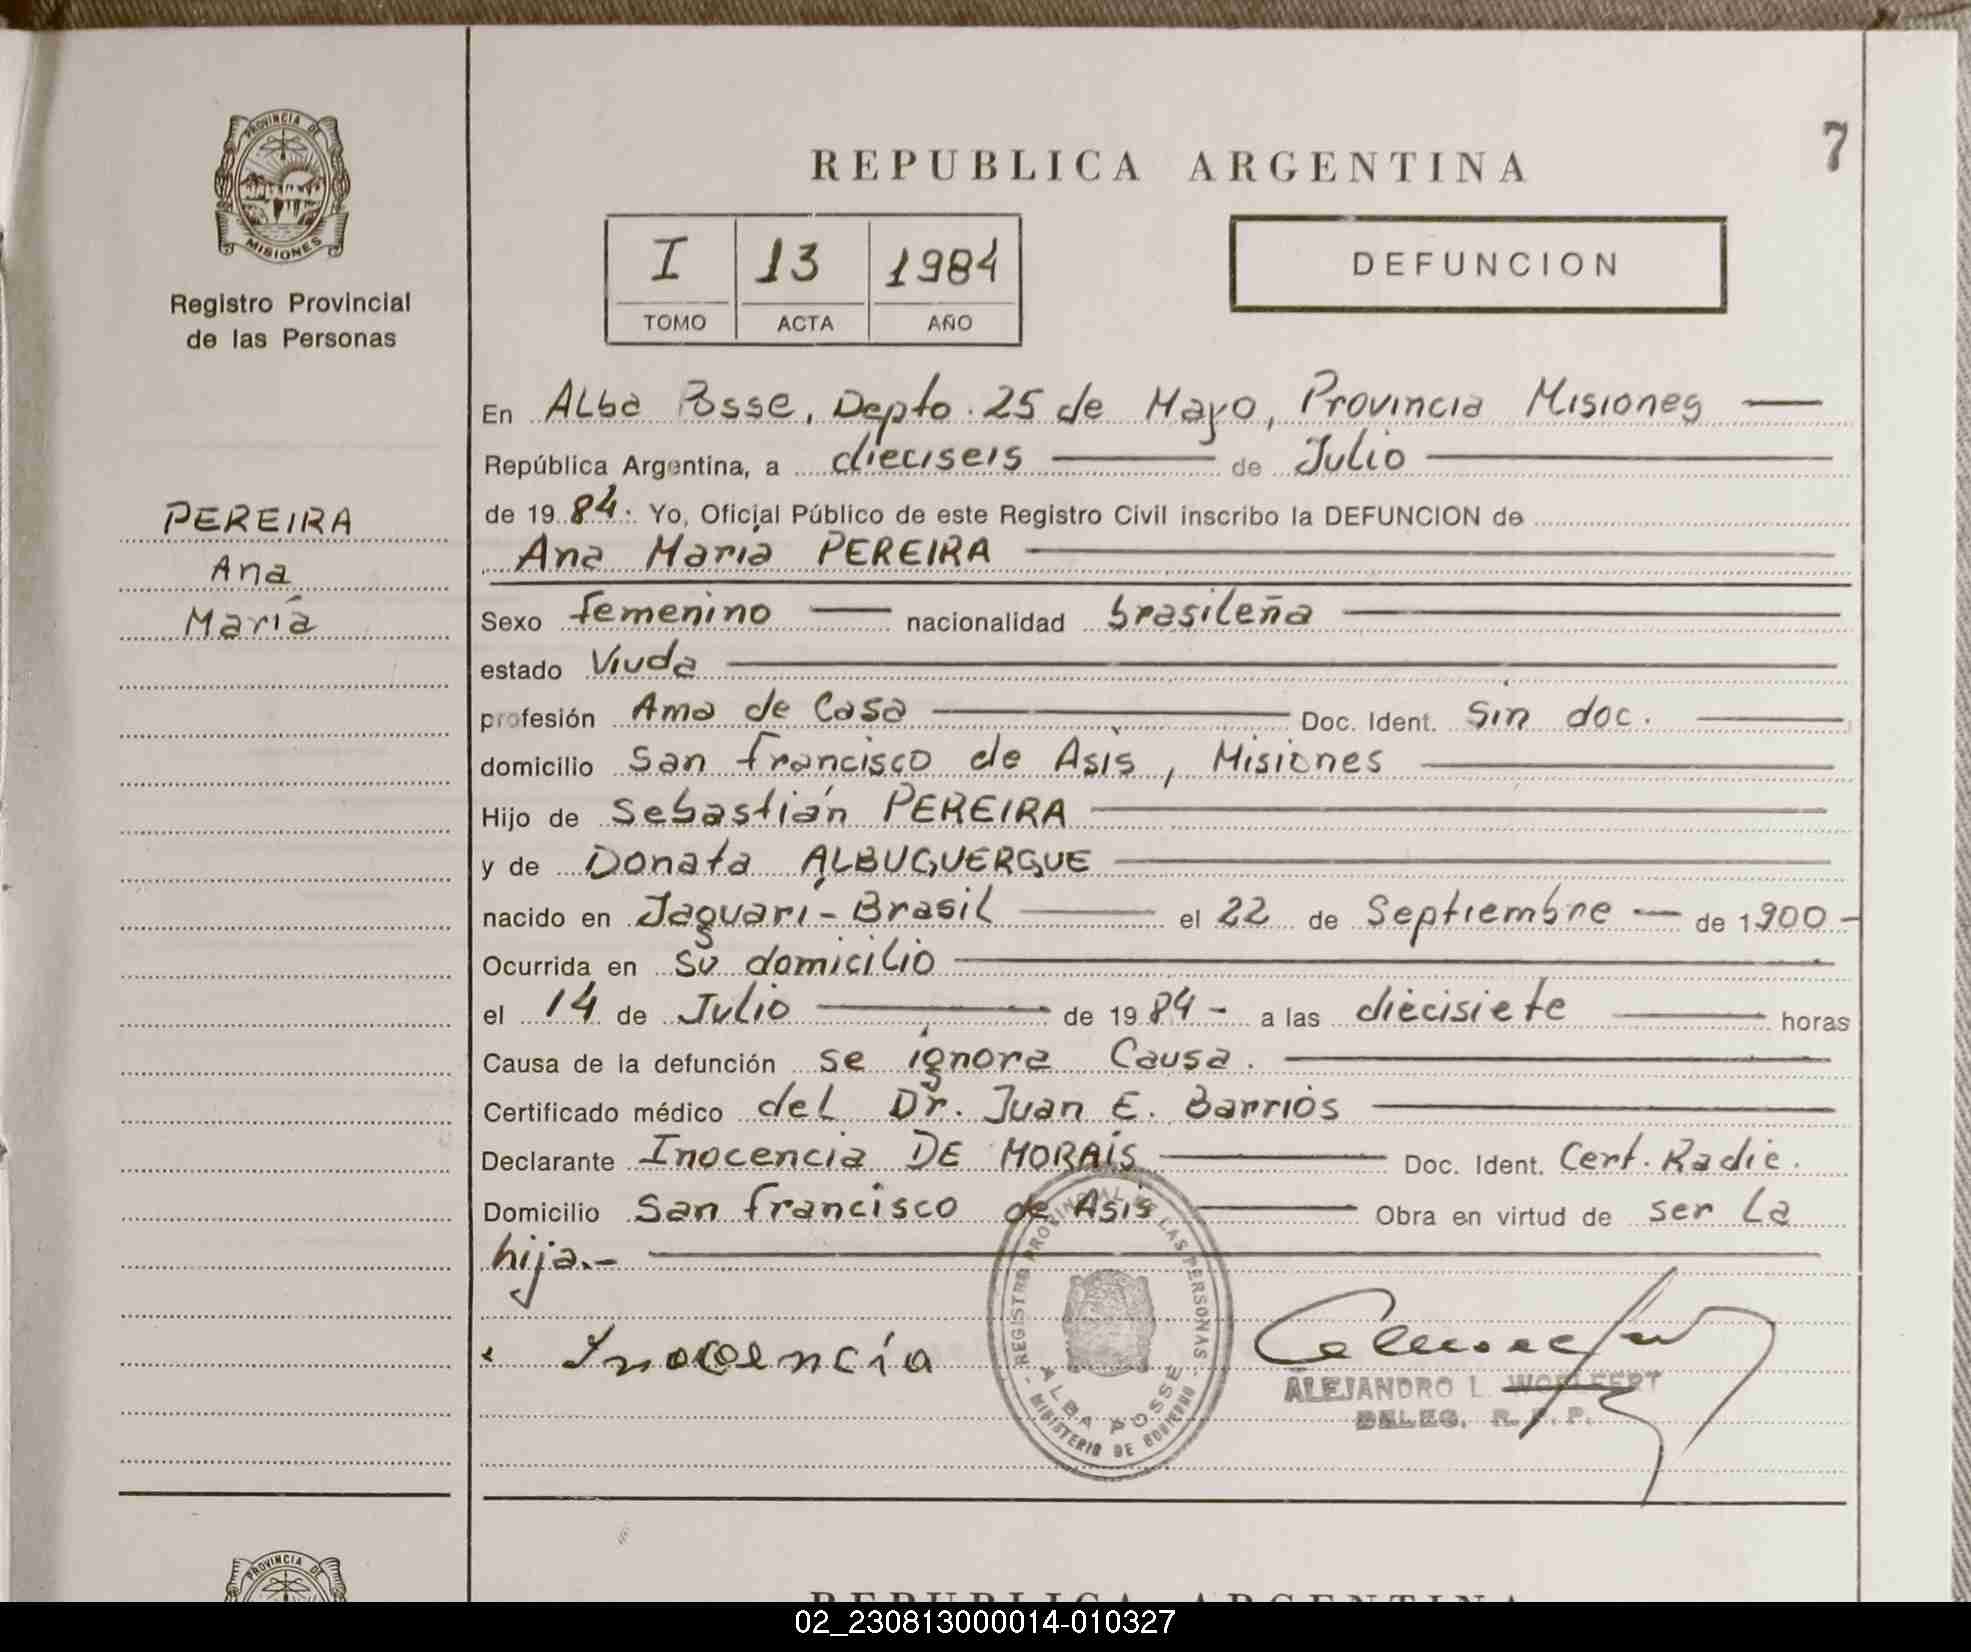 PROVINCIA DE
MISIONES
Registro Provincial
de las Personas
PEREIRA
Ana
María
7
REPUBLICA ARGENTINA
I 13 1984
TOMO ACTA AÑO
DEFUNCION
En Alba Posse, Depto. 25 de Mayo, Provincia Misiones
República Argentina, a dieciseis de Julio
de 1984. Yo, Oficial Público de este Registro Civil inscribo la DEFUNCION de
Ana Maria PEREIRA
Sexo femenino nacionalidad brasileña
estado Viuda
profesión Ama de Casa Doc. Ident. Sin doc.
domicilio San Francisco de Asís, Misiones
Hijo de Sebastián PEREIRA
y de Donata ALBUQUERQUE
nacido en Jaguarí - Brasil el 22 de Septiembre de 1900 -
Ocurrida en su domicilio
el 14 de Julio de 1984 - a las diecisiete horas
Causa de la defunción se ignora Causa.
Certificado médico del Dr. Juan E. Barrios
Declarante Inocencia DE MORAIS Doc. Ident. Cert. Radic.
Domicilio San Francisco de Asis Obra en virtud de ser la
hija.-
Inocencia
REGISTRO PROVINCIAL DE LAS PERSONAS
ALBA POSSE
MINISTERIO DE GOBIERNO
ALEJANDRO L. WOELFERT
DELEG. R. P. P.
PROVINCIA DE
REPUBLICA ARGENTINA
02_230813000014-010327